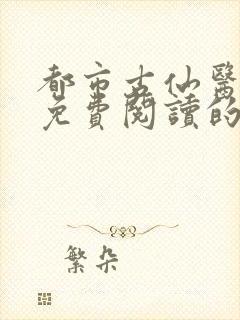 都市古仙醫
免費閱讀的
繁朵